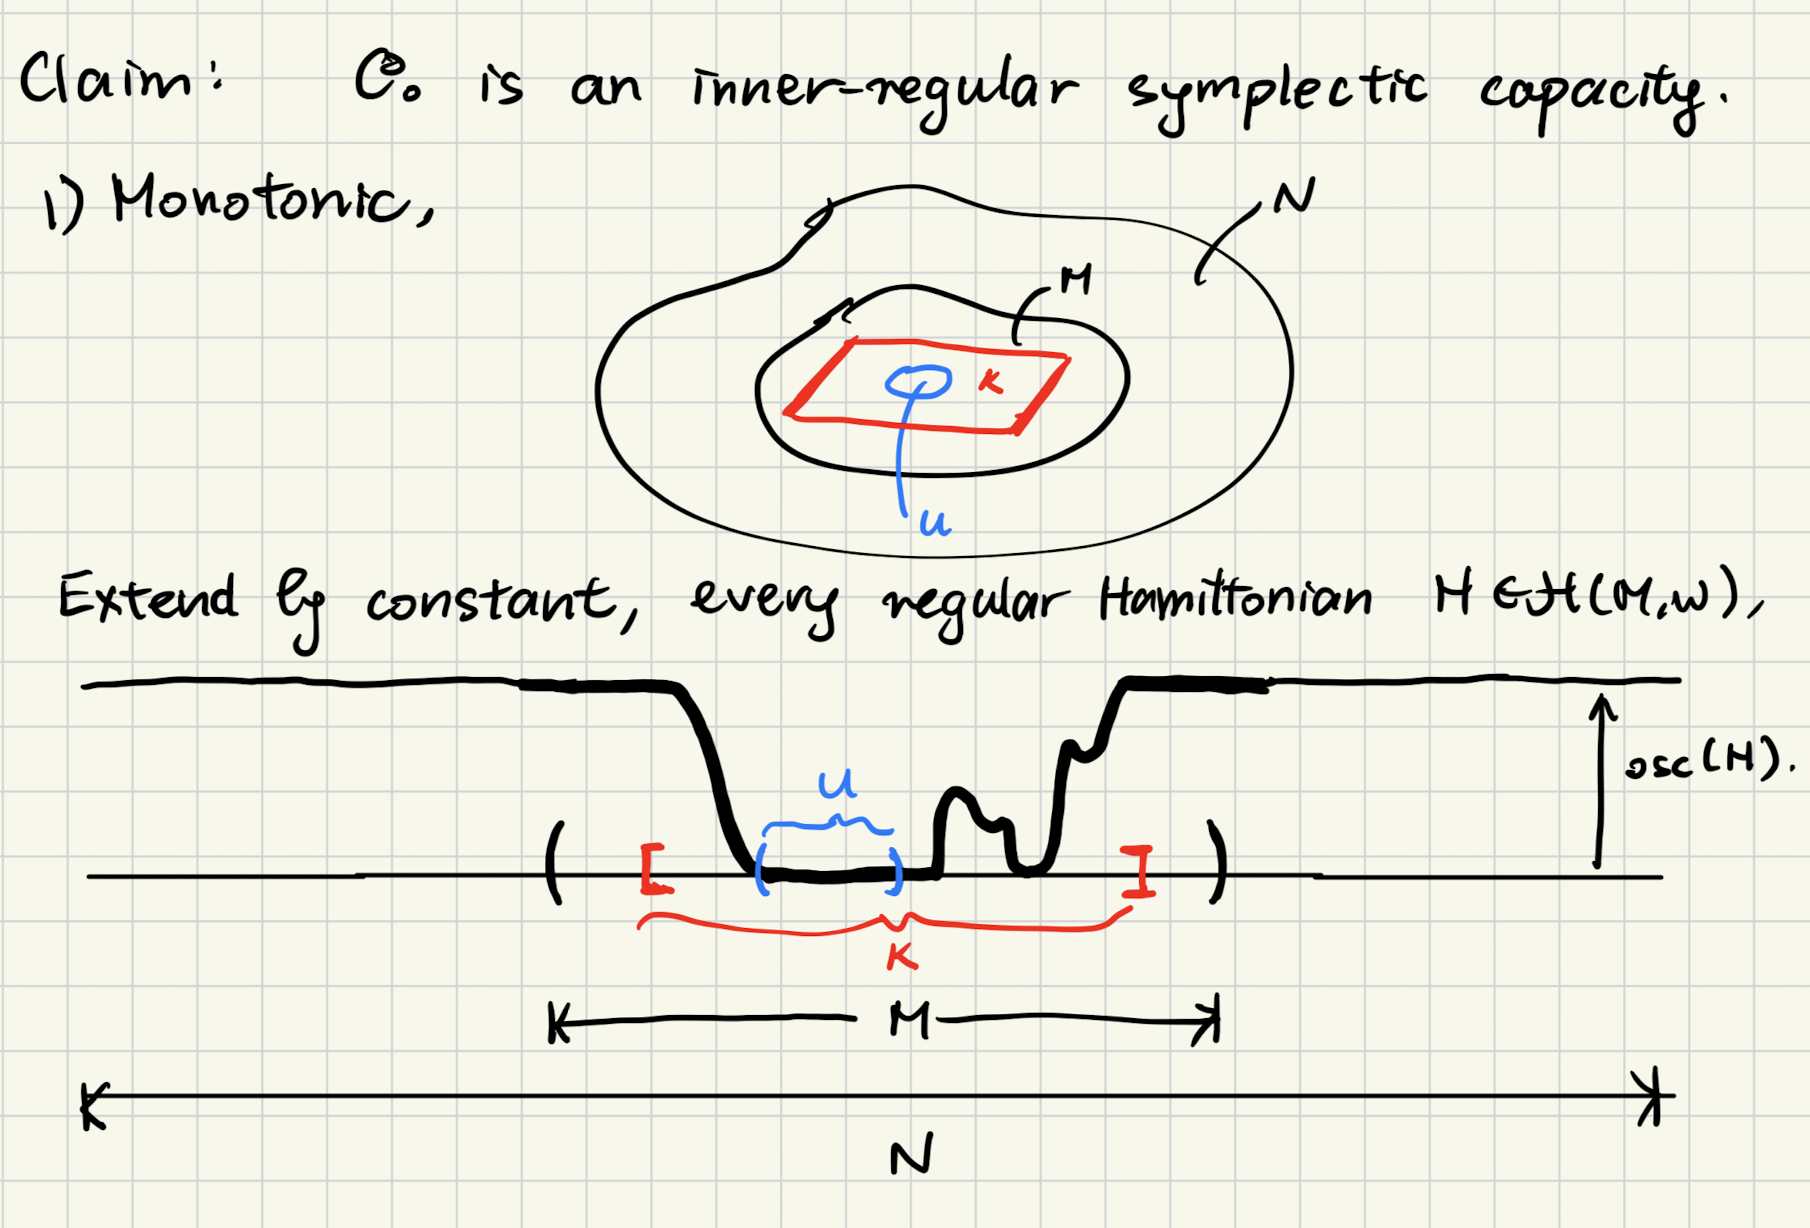 Claim: C₀ is an inner-regular symplectic capacity.
1) Monotonic,
N
M
K
U
Extend by constant, every regular Hamiltonian H ∈ H(M,ω),
osc(H).
U
K
M
N